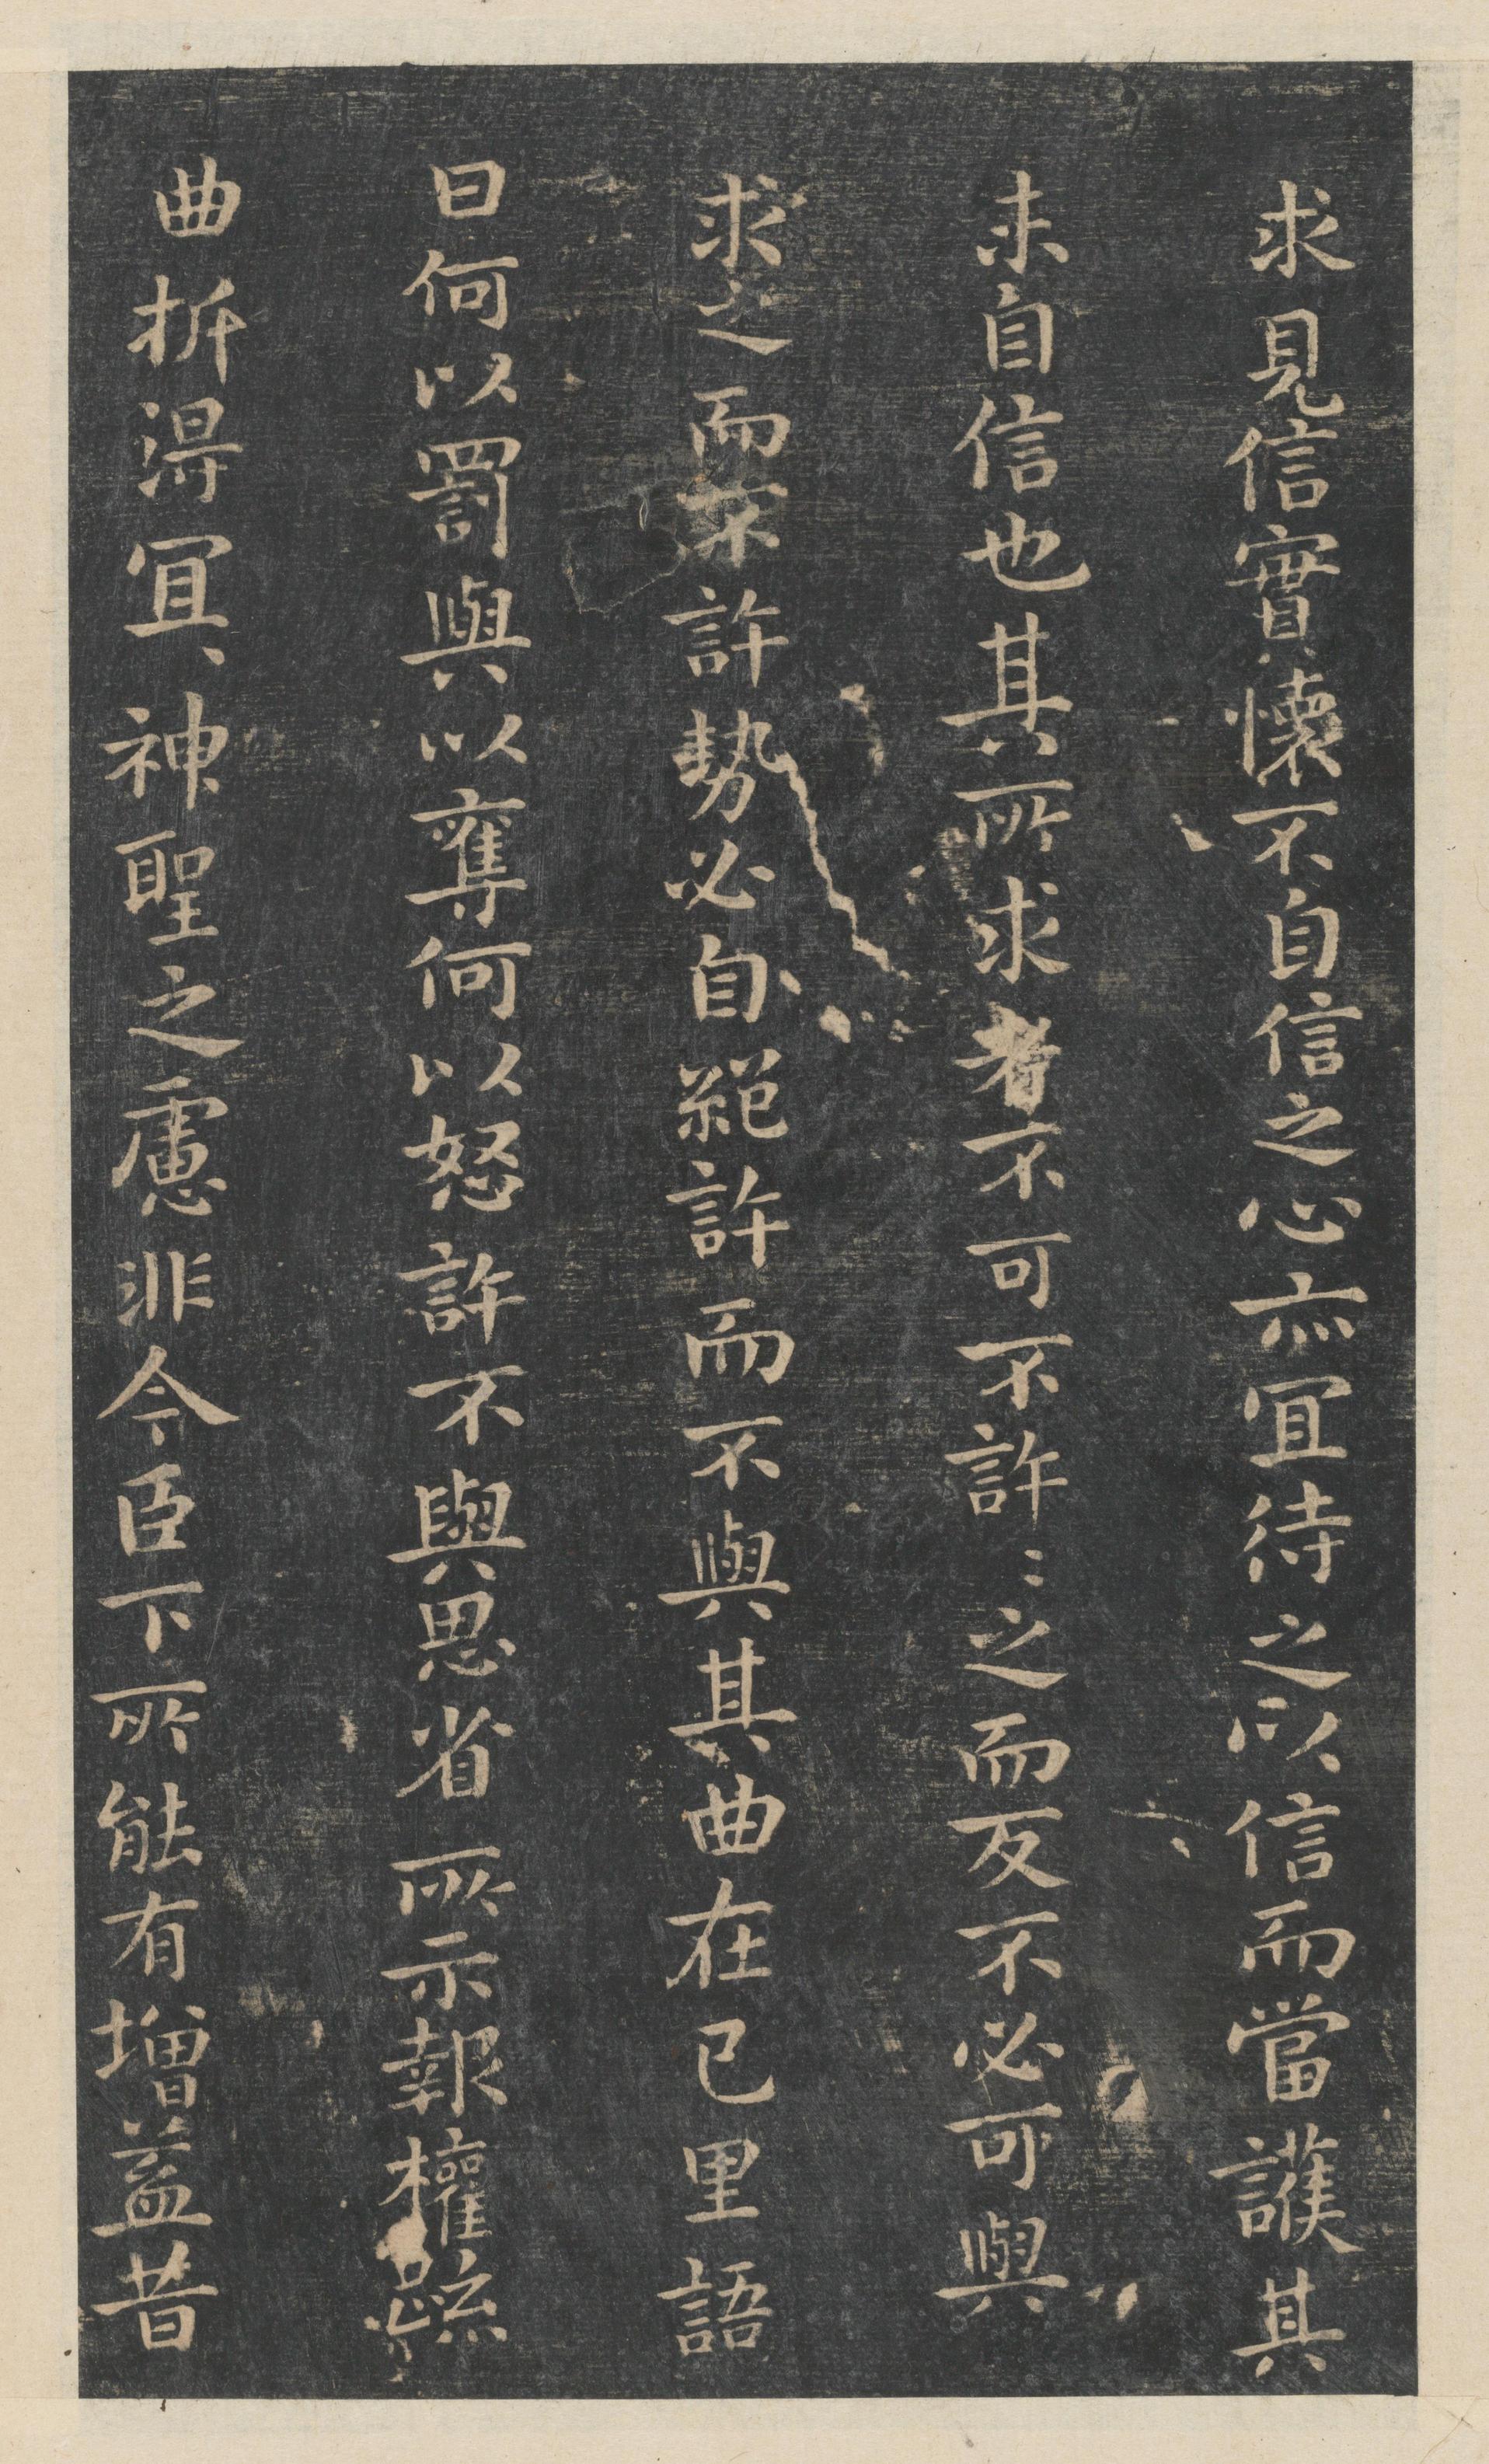 求見信實懷不自信之心亦宜待之以信而當護其
未自信也其所求者不可不許〻之而反不必可與
求之而不許勢必自絕許而不與其曲在己里語
曰何以罰與以奪何以怒許不與思省所示報權疏
曲折得宜〻神聖之慮非今臣下所能有增益昔